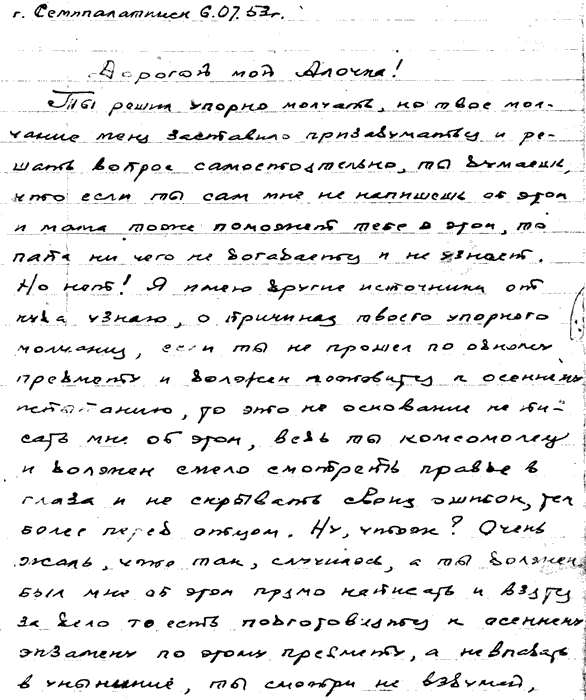 г. Семипалатинск 6.07.53г.
Дорогой мой Алочка!
Ты решил упорно молчать, но твое мол-
чание меня заставило призадуматься и ре-
шать вопрос самостоятельно, ты думаешь,
что если ты сам мне не напишешь об этом
и мама тоже поможет тебе в этом, то
папа ни чего не догадается и не узнает.
Но нет! Я имею другие источники от
куда узнаю, о причинах твоего упорного
молчания, если ты не прошел по одному
предмету и должен готовится к осенним
испытанию, то это не основание не пи-
сать мне об этом, ведь ты комсомолец
и должен смело смотреть правде в
глаза и не скрывать своих ошибок, тем
более перед отцом. Ну, чтож? Очень
жаль, что так, случилось, а ты должен
был мне об этом прямо написать и взятся
за дело то есть подготовится к осеннему
экзамену по этому предмету, а не впадать
в уныние, ты смотри не вздумай,